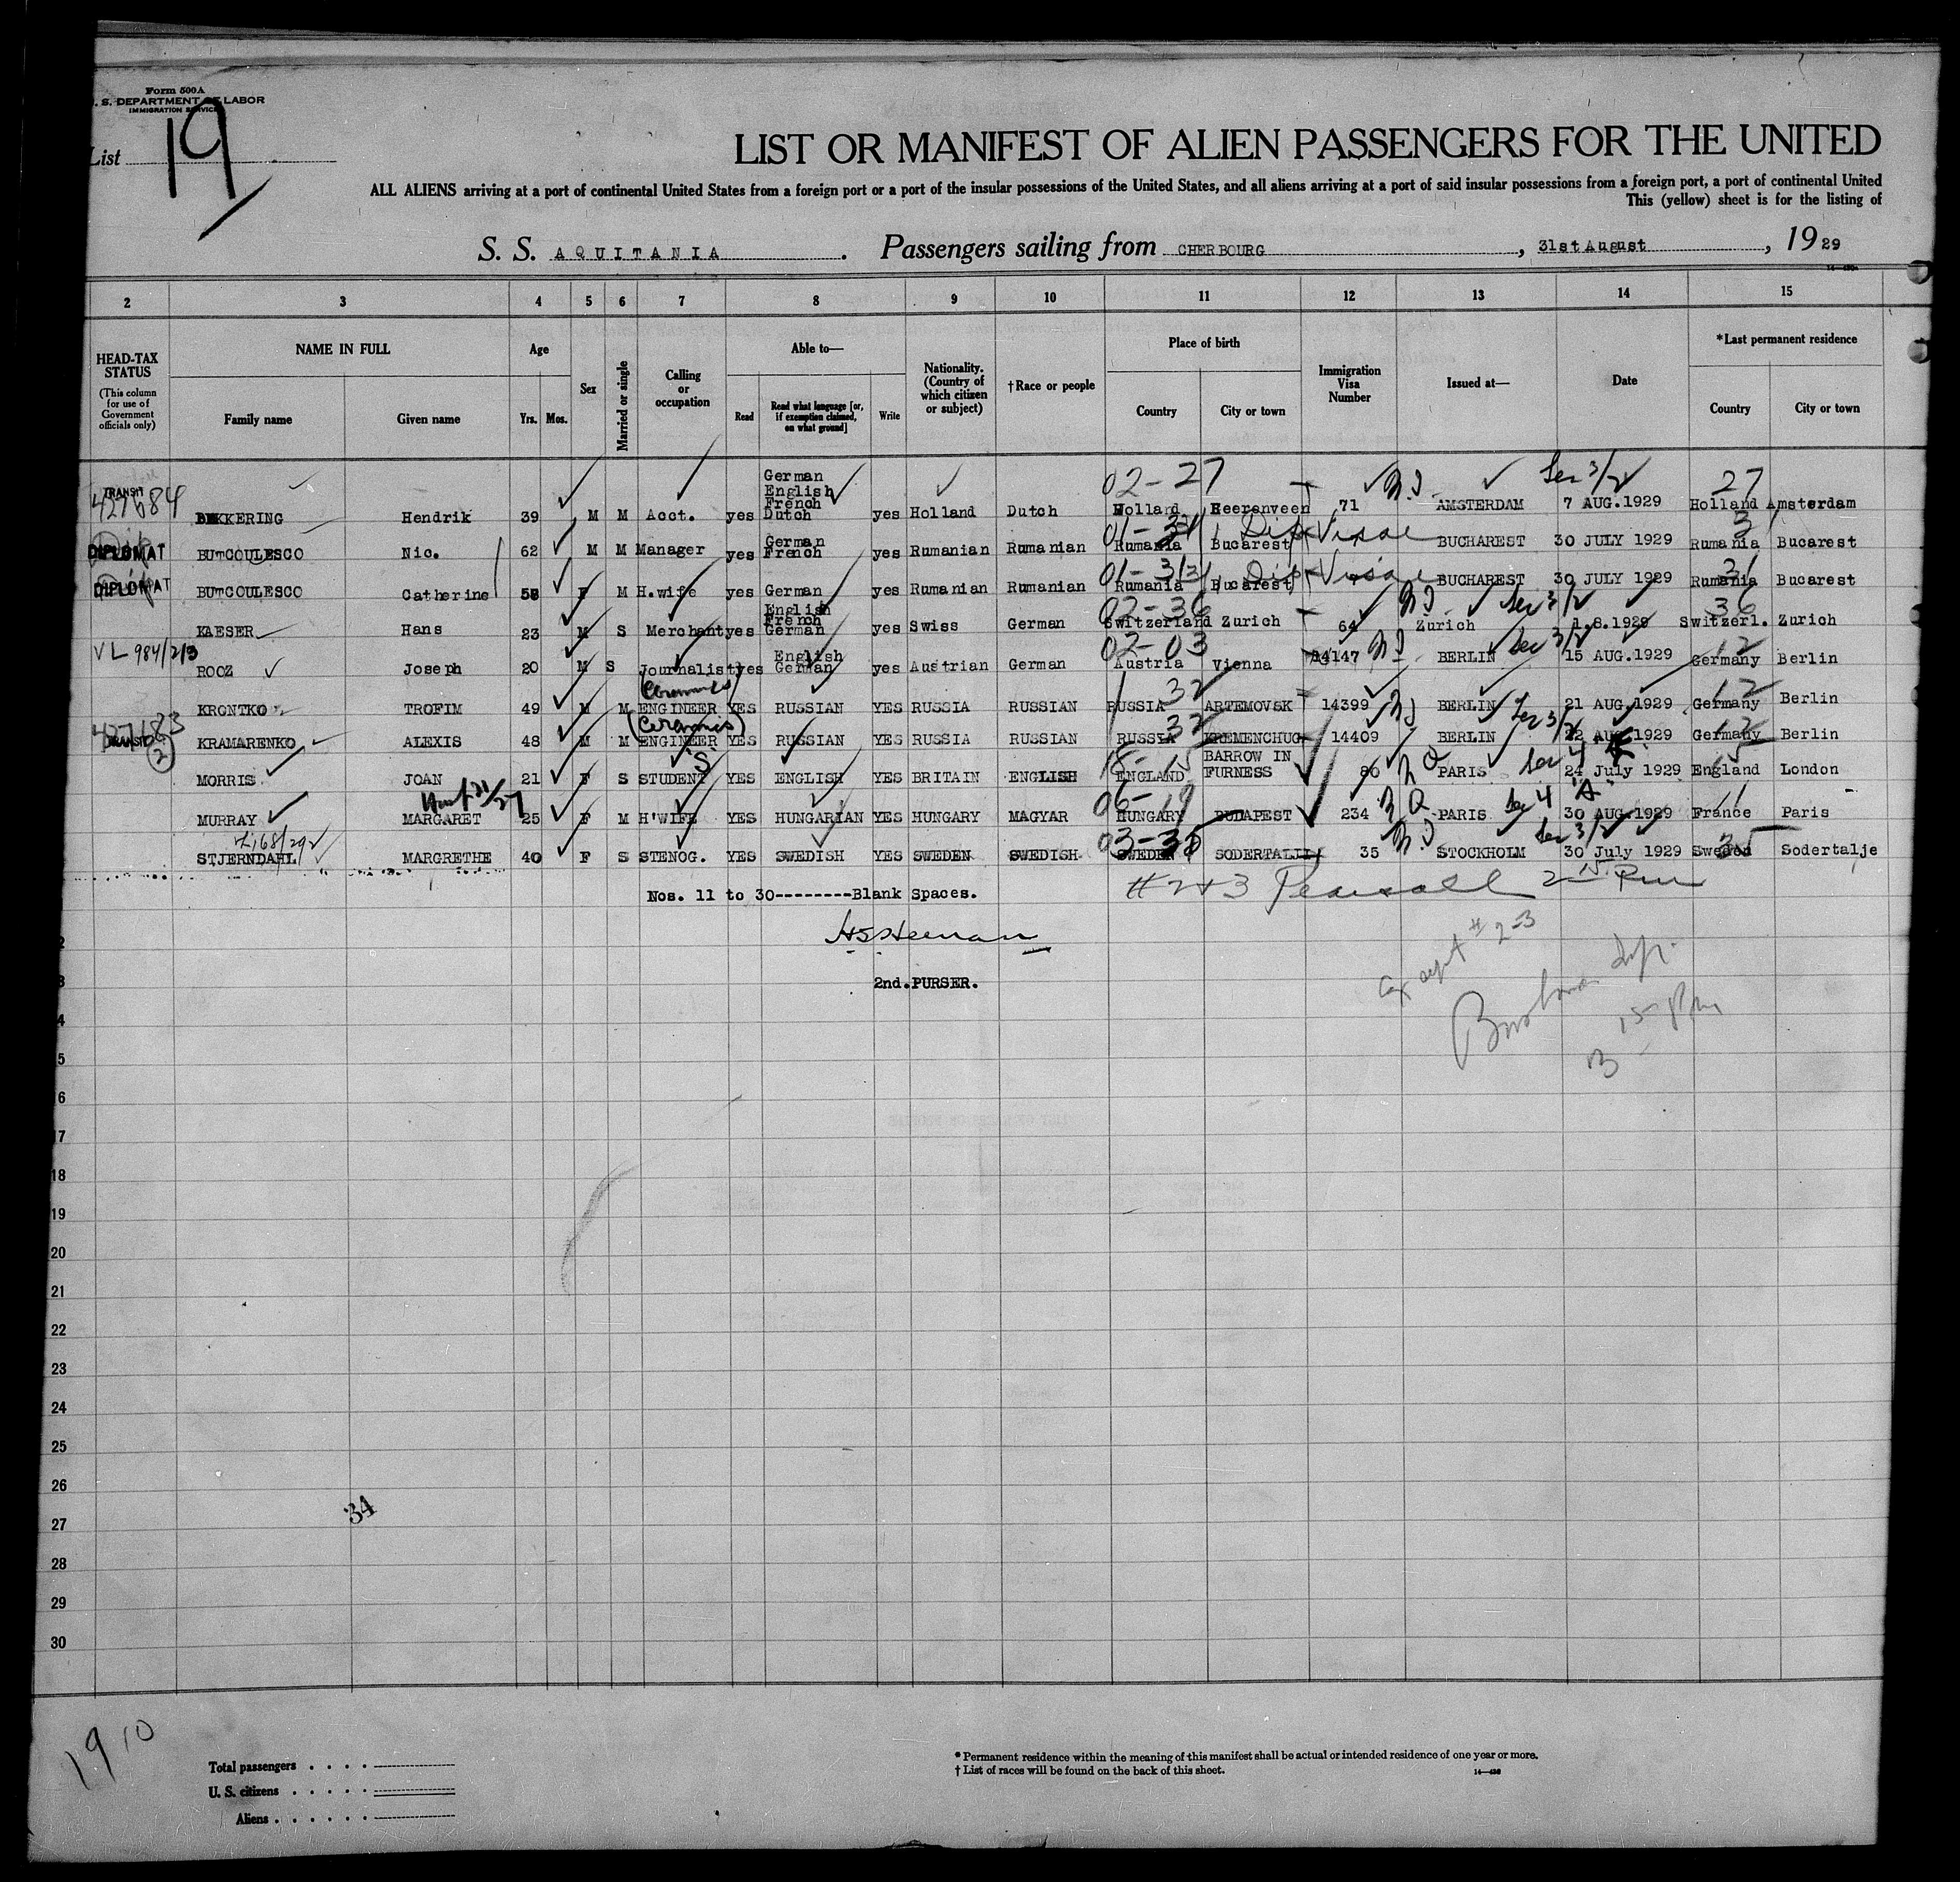 Form 500A
U. S. DEPARTMENT OF LABOR
IMMIGRATION SERVICE
List 19
LIST OR MANIFEST OF ALIEN PASSENGERS FOR THE UNITED
ALL ALIENS arriving at a port of continental United States from a foreign port or a port of the insular possessions of the United States, and all aliens arriving at a port of said insular possessions from a foreign port, a port of continental United
This (yellow) sheet is for the listing of
S. S. AQUITANIA. Passengers sailing from CHERBOURG, 31st August, 1929
2 3 4 5 6 7 8 9 10 11 12 13 14 15
HEAD-TAX STATUS (This column for use of Government officials only) NAME IN FULL Family name Given name Age Yrs. Mos. Sex Married or single Calling or occupation Able to— Read Read what language [or, if exemption claimed, on what ground] Write Nationality. (Country of which citizen or subject) †Race or people Place of birth Country City or town Immigration Visa Number Issued at— Date *Last permanent residence Country City or town
German
English
French 02-27 27
TRANSIT 427684 BEKKERING Hendrik 39 M M Acct. yes Dutch yes Holland Dutch Holland Heerenveen 71 AMSTERDAM 7 AUG.1929 Holland Amsterdam
German Dip Visae
DIPLOMAT BUTCOULESCO Nic. 62 M M Manager yes French yes Rumanian Rumanian Rumania Bucarest BUCHAREST 30 JULY 1929 Rumania Bucarest
Dip Visae
DIPLOMAT BUTCOULESCO Catherine F M H.wife yes German yes Rumanian Rumanian Rumania Bucarest BUCHAREST 30 JULY 1929 Rumania Bucarest
English
French 02-36 36
KAESER Hans 23 M S Merchant yes German yes Swiss German Switzerland Zurich 64 Zurich 1.8.1929 Switzerl. Zurich
VL 984/2/3 English 02-03 12
ROOZ Joseph 20 M S Journalist yes German yes Austrian German Austria Vienna 14147 BERLIN 15 AUG.1929 Germany Berlin
(Ceramics) 32 12
KRONTKO TROFIM 49 M M ENGINEER YES RUSSIAN YES RUSSIA RUSSIAN RUSSIA ARTEMOVSK 14399 BERLIN 21 AUG.1929 Germany Berlin
(Ceramics) 32 12
TRANSIT 427683 (2) KRAMARENKO ALEXIS 48 M M ENGINEER YES RUSSIAN YES RUSSIA RUSSIAN RUSSIA KREMENCHUG 14409 BERLIN 22 AUG.1929 Germany Berlin
BARROW IN
MORRIS JOAN 21 F S STUDENT YES ENGLISH YES BRITAIN ENGLISH ENGLAND FURNESS 80 PARIS 24 July 1929 England London
06-19
MURRAY MARGARET 25 F M H'WIFE YES HUNGARIAN YES HUNGARY MAGYAR HUNGARY BUDAPEST 234 PARIS 30 AUG.1929 France Paris
03-35 35
STJERNDAHL MARGRETHE 40 F S STENOG. YES SWEDISH YES SWEDEN SWEDISH SWEDEN SODERTALJE 35 STOCKHOLM 30 July 1929 Sweden Sodertalje
Nos. 11 to 30--------Blank Spaces. #2+3
except #2-3
2nd. PURSER.
4
5
6
17
18
19
20
21
22
23
24
25
26
34
27
28
29
30
19 10
Total passengers
U. S. citizens
Aliens
* Permanent residence within the meaning of this manifest shall be actual or intended residence of one year or more.
† List of races will be found on the back of this sheet.